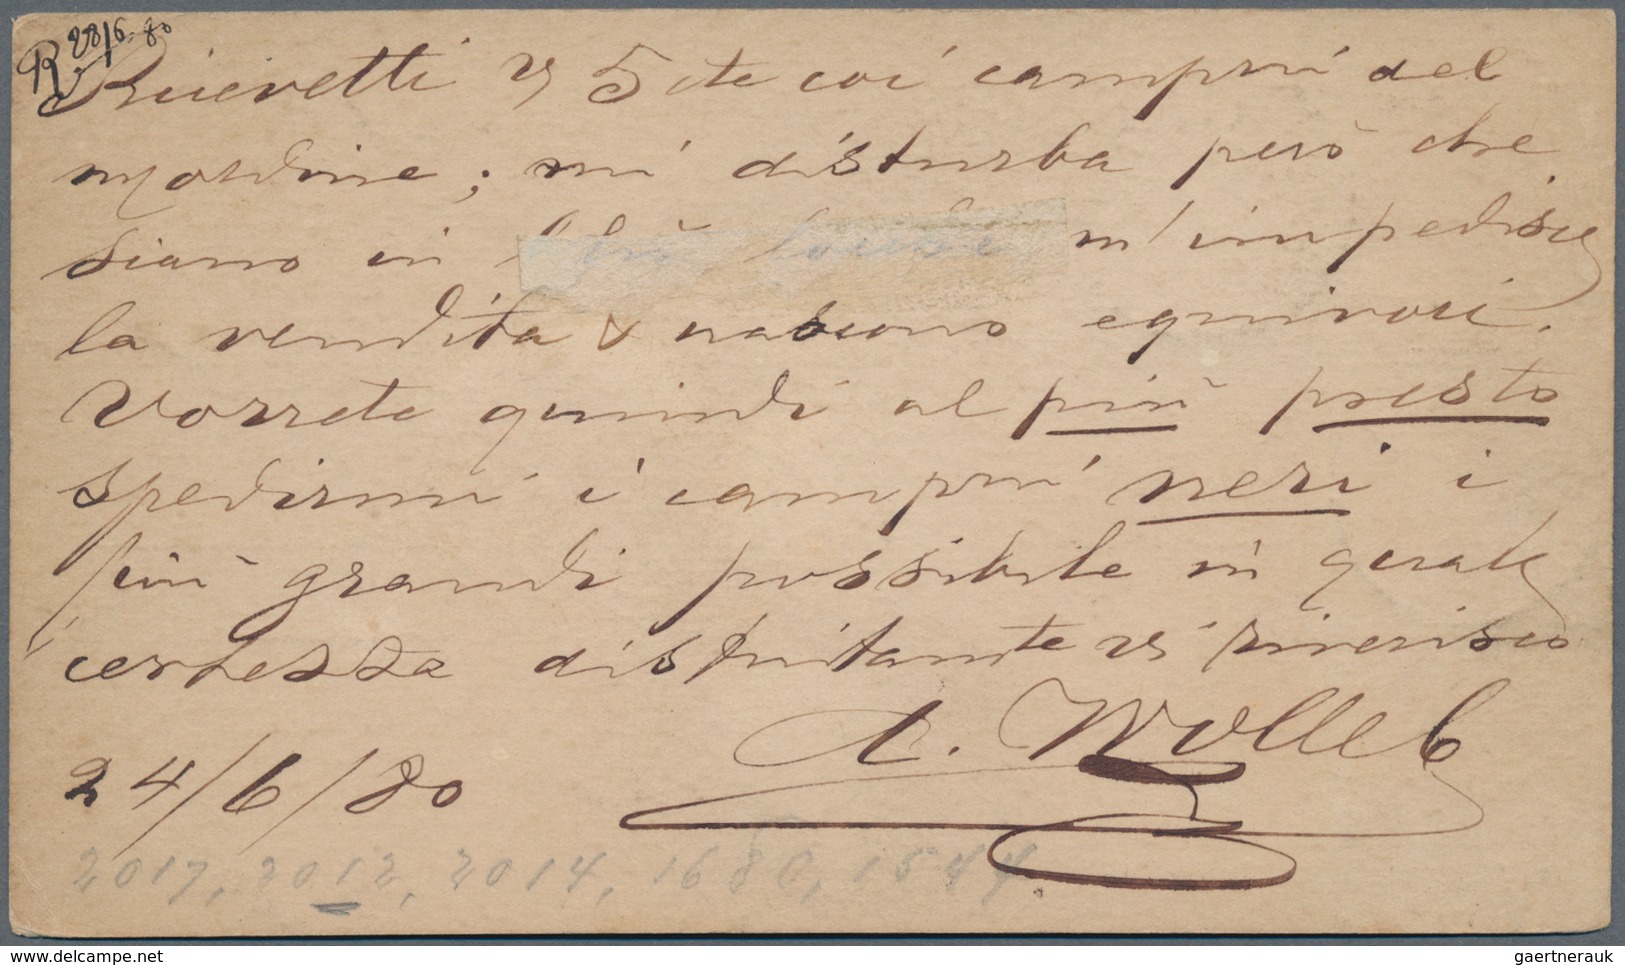 R. 28/6. 80
Ricevetti vs 5 cte coi campni del
mordine; mi disturba però che
siano in m'impedisce
la vendita & nascono equivoci.
Vorrete quindi al più presto
spedirmi i campni neri i
più grandi possibile in quale
certezza distintamte vi riverisco
A. Wolleb
24/6/80
2017, 2012, 2014, 1680, 1544.
delcampe.net
gaertnerauk